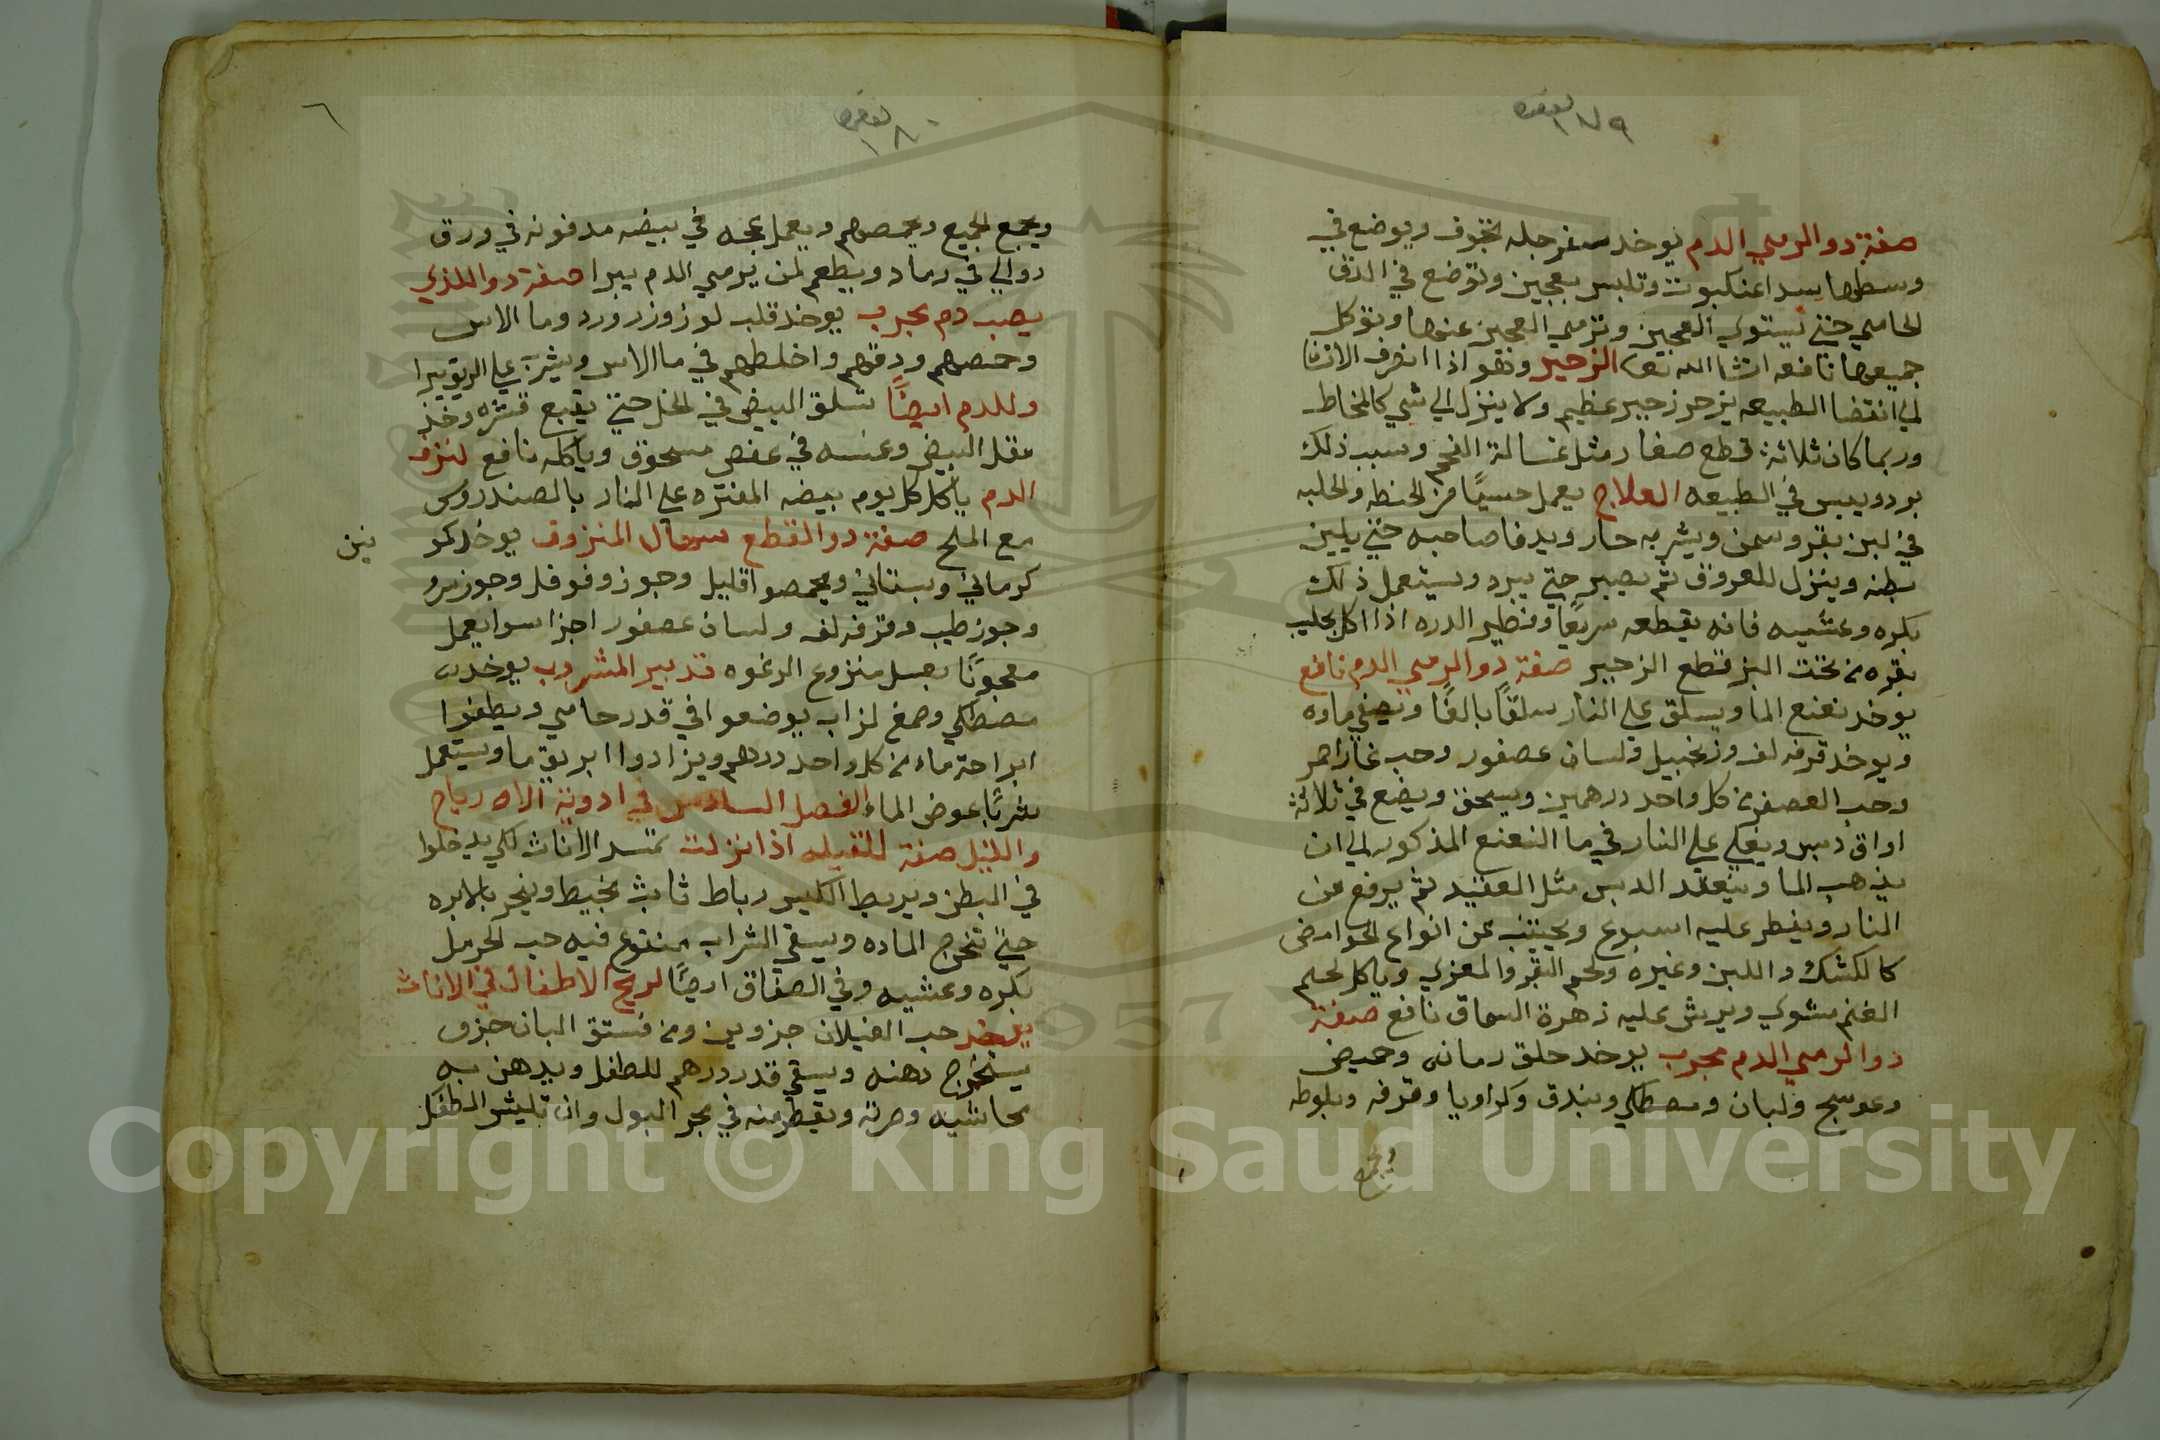 ١٧٩
صفة دوا لرمي الدم يوخد سفرجله تجوف ويوضع في
وسطها سدا عنكبوت وتلبس بعجين وتوضع في الدق
الحامي حتي يستوي العجين وترمي العجين عنها وتوكل
جميعها نافعه انشا الله تعا الزحير وهو اذا انصرف الانسان
الي انقضا الطبيعه يزحر زحير عظيم ولا ينزل الي شي كالمخاط
وربما كان ثلاثة قطع صغار مثل غسالة الفحم وسبب ذلك
برد ويبس في الطبيعه العلاج يعمل حسيًا من الحنطه والحلبه
في لبن بقر وسمن ويشربه حار ويدفا صاحبه حتي يلين
بطنه وينزل للعروق ثم يصبر حتي يبرد ويستعمل ذلك
بكره وعشيه فانه يقطعه سريعًا وفطير الدره اذا اكل بحليب
بقره من تحت البز قطع الزحير صفة دوا لرمي الدم نافع
يوخد نعنع الما ويسلق علي النار سلقًا بالغًا ويصفي ماوه
ويوخد قرفه لف وزنجبيل ولسان عصفور وحب غار احمر
وحب العصفر من كل واحد درهمين ويسحق ويضع في ثلاثة
اواق دبس ويغلي علي النار في ما النعنع المذكور الي ان
يذهب الما وينعقد الدبس مثل العقيد ثم يرفع عن
النار ويفطر عليه اسبوع ويجتنب عن انواع الحوامض
كالكشك واللبن وغيره ولحم البقر والمعزي وياكل لحم
الغنم مشوي ويرش عليه زهرة السماق نافع صفة
دوا لرمي الدم مجرب يوخد حلق رمانه وحميض
وعوسج ولبان ومصطكي وبندق وكراويا وقرفه وبلوطه
ويجمع
١٨٠
٦
ويجمع الجميع ويحمصهم ويعمل عجه في بيضه مدفونه في ورق
دوالي في رماد ويطعم لمن يرمي الدم يبرا صفة دوا للذي
يصب دم مجرب يوخد قلب لوز وزر ورد وما الاس
وحمصهم ودقهم واخلطهم في ما الاس ويشربه علي الريق يبرا
وللدم ايضًا تسلق البيض في الخل حتي يقبع قشره وخذ
مقل البيض وغمسه في عفص مسحوق وياكله نافع لنزف
الدم ياكل كل يوم بيضه المفتره علي النار بالصندروس
مع الملح صفة دوا لقطع سهال المنزوف يوخد كمو
نين
كرماني وبستاني ويحمصوا قليل وجوز وفوفل وجوز سرو
وجوز طيب وقرفه لف ولسان عصفور اجزا سوا يعمل
معجونًا بعسل منزوع الرغوه تدبير المشروب يوخد له
مصطكي وصمغ لزاب يوضعوا في قدر حامي ويطفوا
ابراحة ماء من كل واحد درهم ويزادوا ابريق ما ويستعمل
شربًا عوض الماء الفصل السادس في ادوية الارياح
والليل صفة للقيله اذا نزلت تمسد الاناث لكي يدخلوا
في البطن ويربط الكيس رباط ثابث بخيط وينحر بالابره
حتي تخرج الماده ويسقي الشراب منقوع فيه حب الحرمل
بكره وعشيه وفي الصفاق ايضًا لريح الاطفال في الاناث
يوخد حب الغيلان جزوين ومن فستق البان جزو
يستخرج دهنه ويسقي قدر درهم للطفل ويدهن به
محاشيه وصرته ويقطر منه في مجر البول وان تليثر الطفل